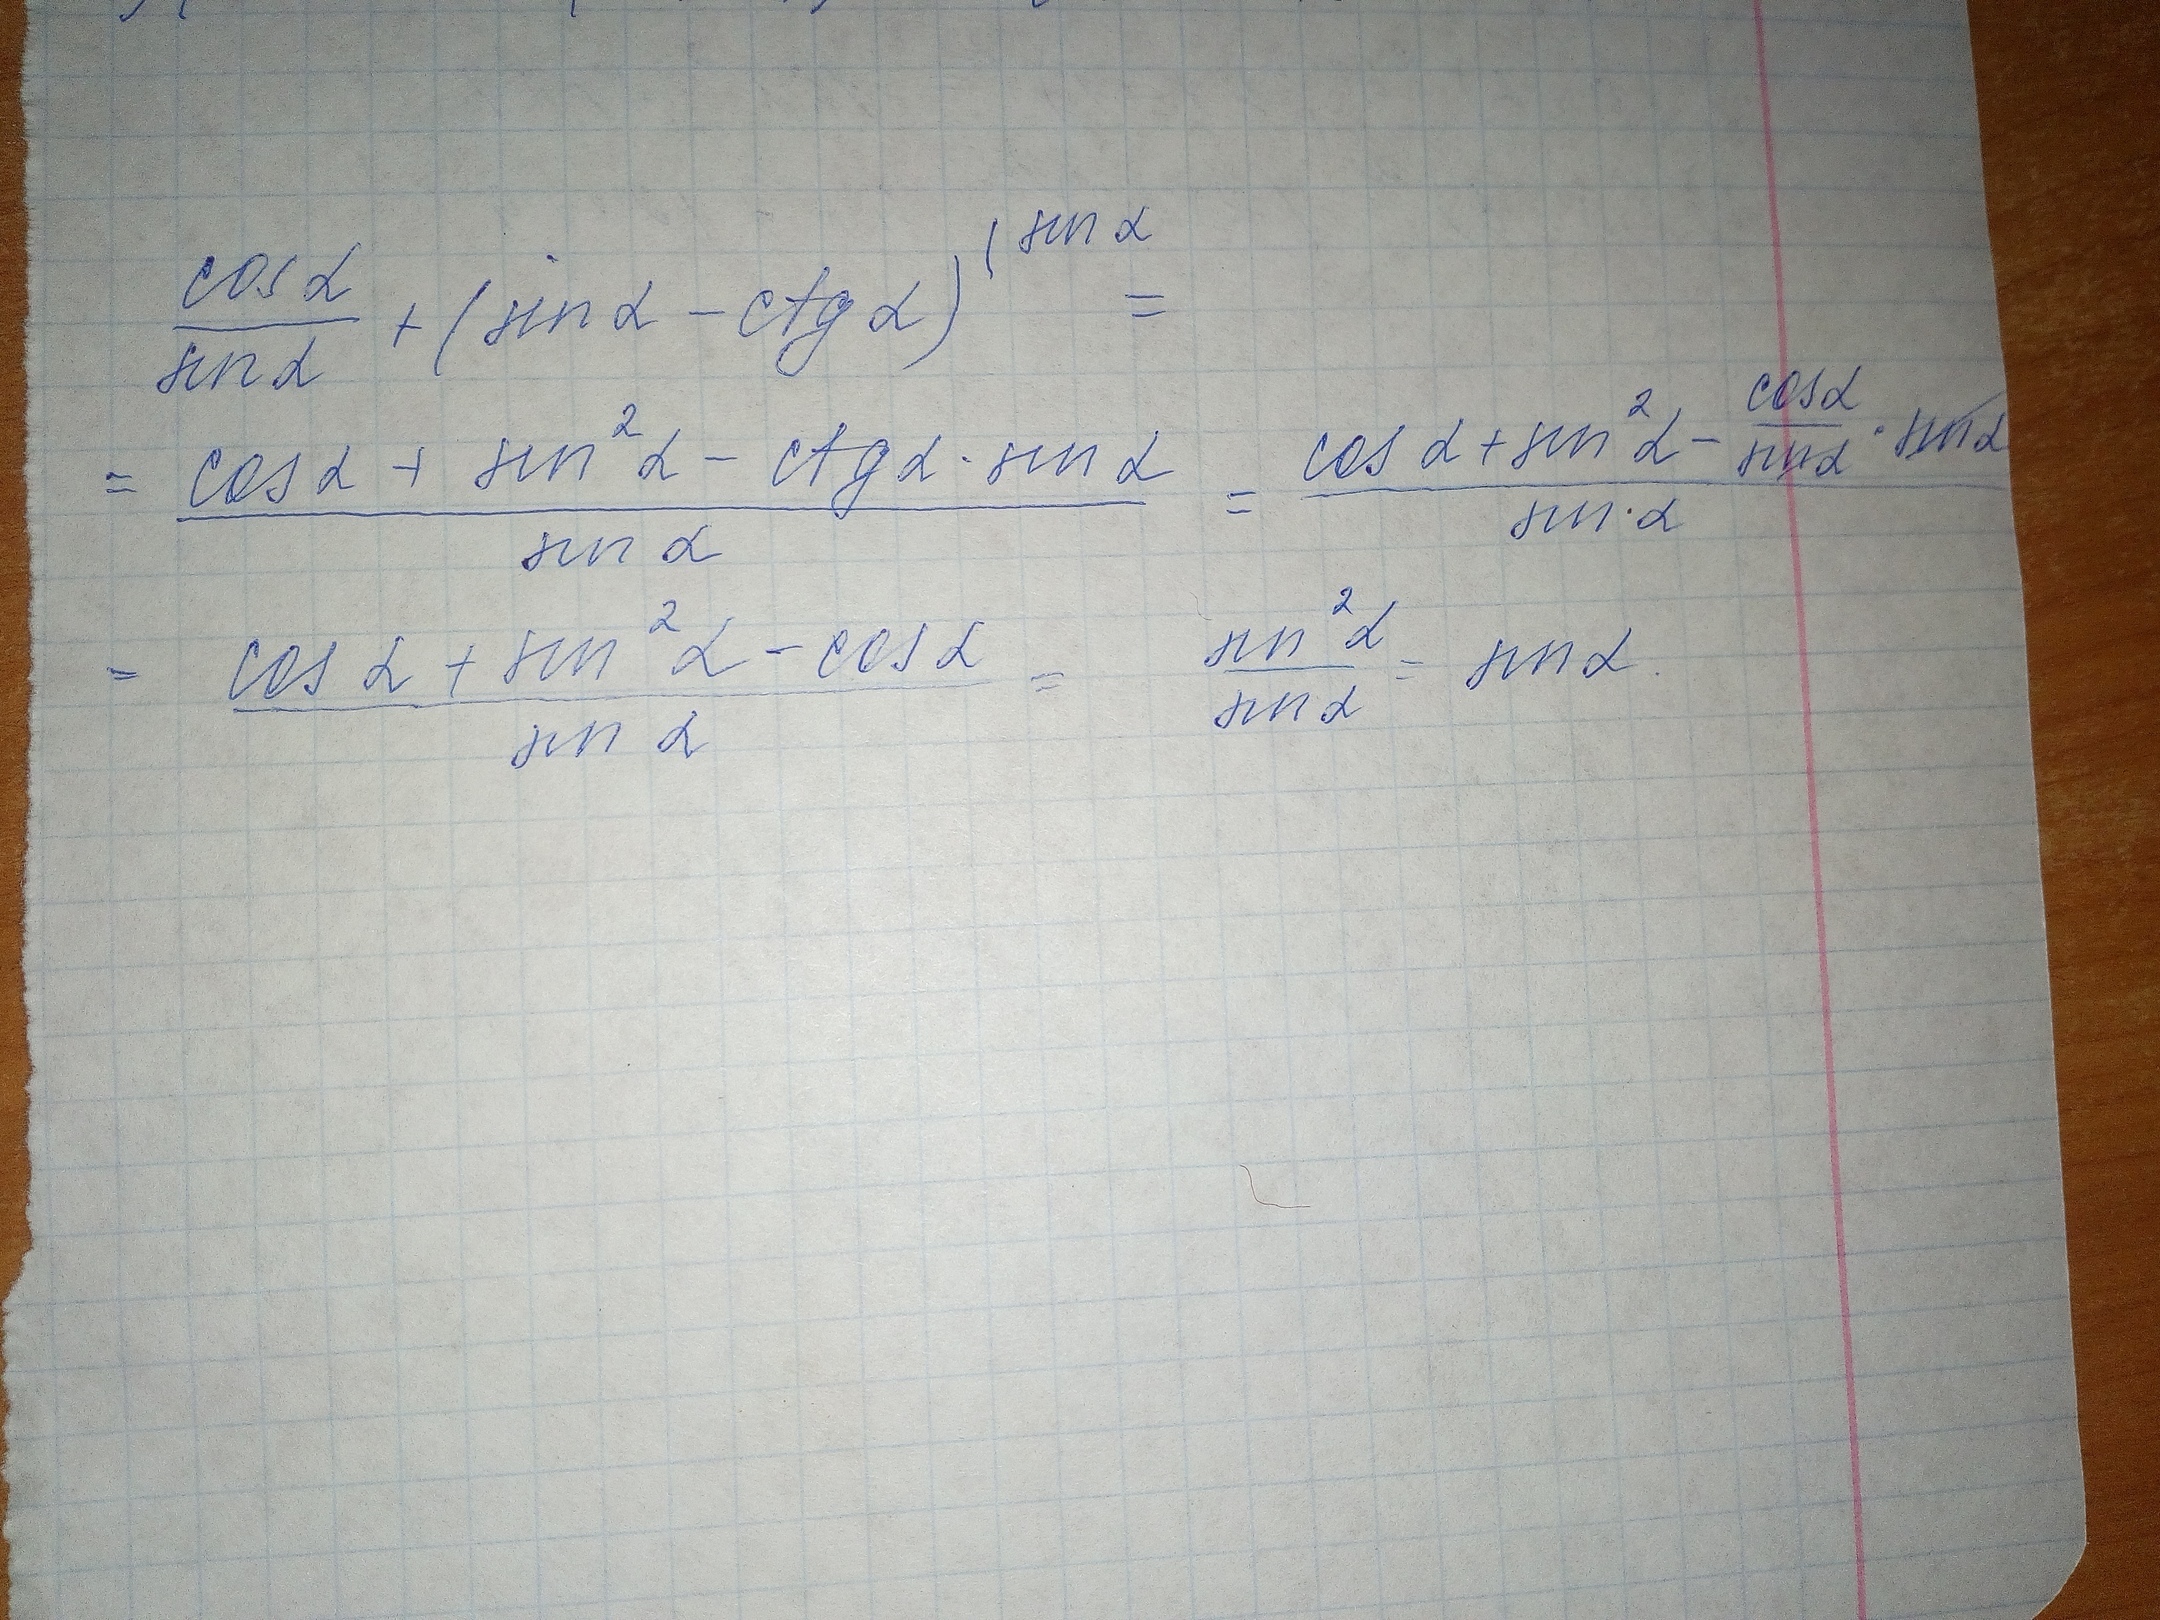 cos α / sin α + (sin α − ctg α)^(sin α =
= (cos α + sin² α − ctg α · sin α) / sin α = (cos α + sin² α − cos α / sin α · sin α) / sin · α
= (cos α + sin² α − cos α) / sin α = sin² α / sin α = sin α.